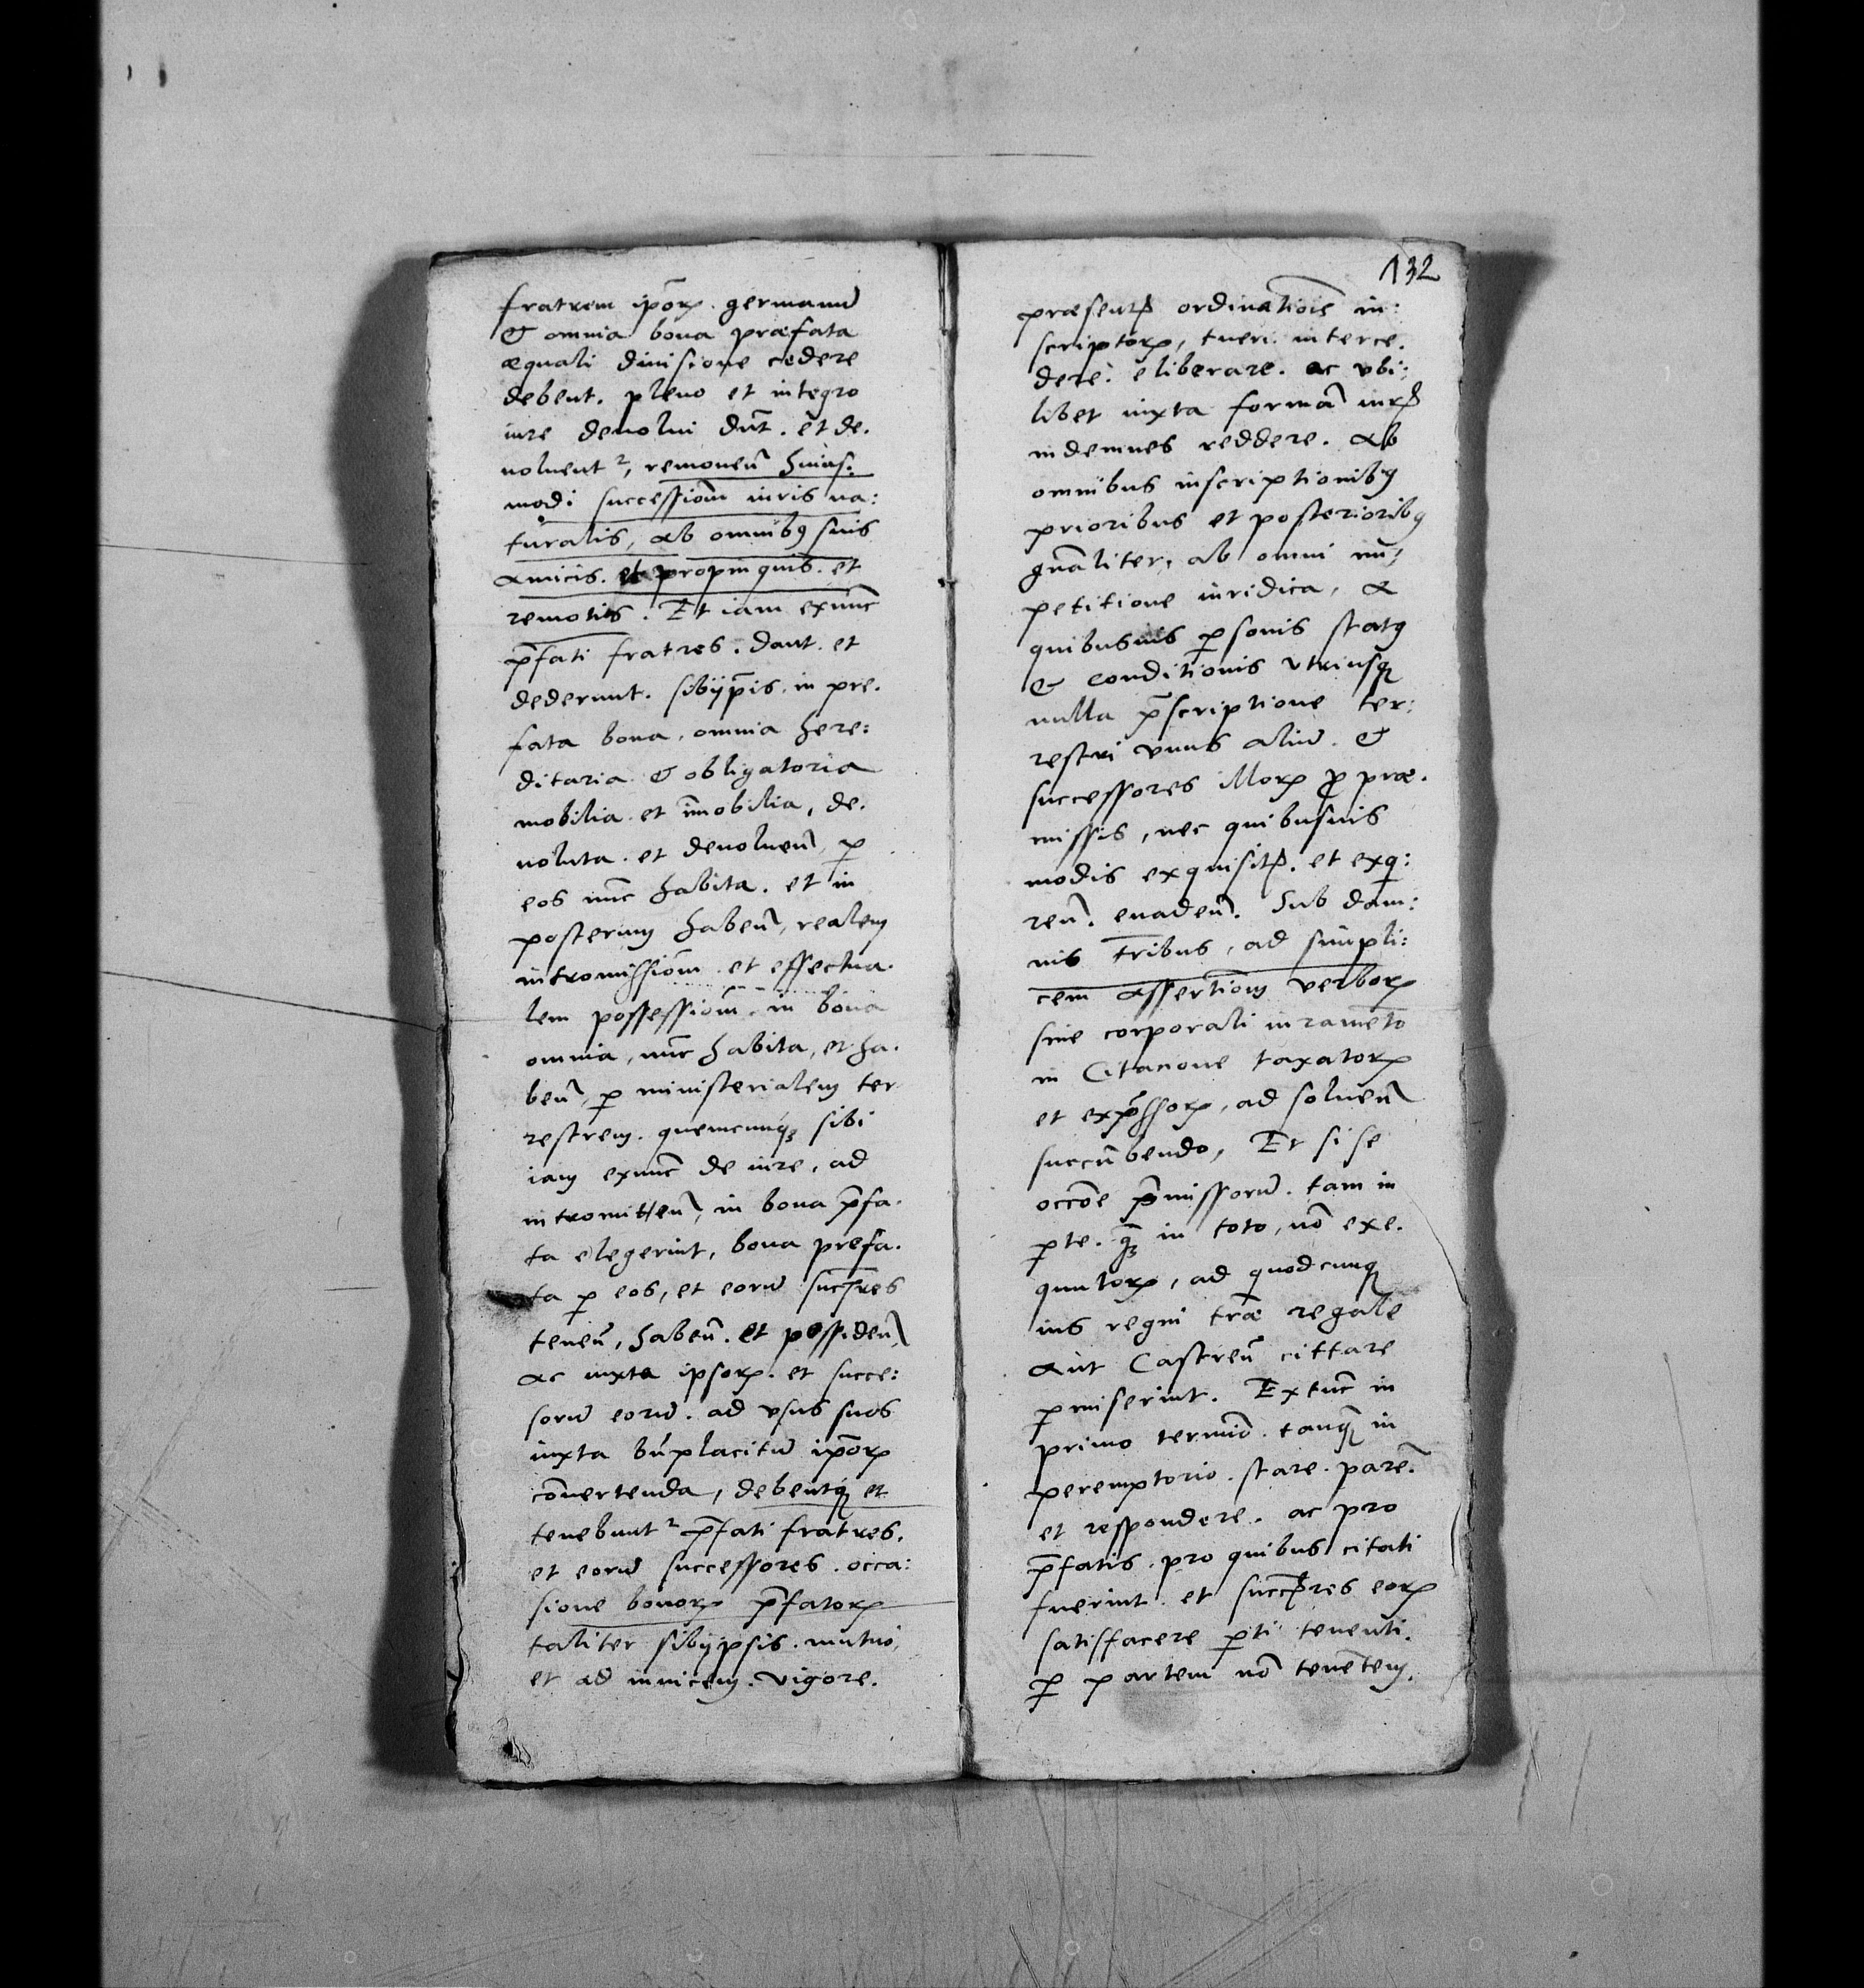 fratrem ipõrꝝ. germanũ
& omnia bona præfata
æquali diuisione cedere
debent. pleno et integro
iure deuolui dñt. et de.
voluent², remoueñ huius.
modi successioñ iuris na:
turalis, ab omnibꝰ suis
amicis. et propinquis. et
remotis. Et iam exnũc
p̃fati fratres. dant. et
dederunt. sibiip̃is. in pre.
fata bona, omnia here:
ditaria & obligatoria
mobilia. et im̃obilia, de.
voluta. et deuolueñ, ꝑ
eos nũc habita. et in
posterum habeñ, realem
intromissioñ. et effectua.
lem possessioñ. in bona
omnia, nũc habita, et ha.
beñ, ꝑ ministerialem ter
restrem. quemcunqꝫ sibi
iam exnũc de iure, ad
intromitteñ, in bona p̃fa.
ta elegerint, bona prefa.
ta ꝑ eos, et eorũ succ̃res
teneñ, habeñ. et possideñ,
ac iuxta ipsorꝝ. et succe:
sorũ eorũ. ad vsus suos
iuxta bñplacitũ ip̃orꝝ
cõuertenda, debentqꝫ et
tenebunt² p̃fati fratres,
et eorũ successores. occa:
sione bonorꝝ p̃fatorꝝ
taliter sibiipsis. mutuo,
et ad inuicem. vigore.
132
præsentꝭ ordinatiõis in:
scriptorꝝ, tueri. interce.
dere. eliberare. ac vbi:
libet iuxta formã iurꝭ
indemnes reddere. ab
omnibus inscriptionibꝰ
prioribus et posterioribꝰ
gñaliter, ab omni im,
petitione iuridica, a
quibusuis ꝑsonis statꝰ
& conditionis vtriusqꝫ
nulla p̃scriptione ter:
restri vnus aliũ. &
successores illorꝝ ꝓ præ.
missis, nec quibusuis
modis exquisitꝭ. et exq̃:
reñ. euadeñ. Sub dam:
nis tribus, ad simpli:
cem assertioñ verborꝝ
sine corporali iuramẽto
in Citacione taxatorꝝ
et exp̃ssorꝝ, ad solueñ
succũbendo, Et si se
occõe p̃missorũ. tam in
ꝑte. qꝫ in toto, nõ exe.
quutorꝝ, ad quodcunqꝫ
ius regni træ regale
aut Castreñ cittare
ꝑmiserint. Extũc in
primo terminõ. tanqꝫ in
peremptorio. stare. parẽ.
et respondere. ac pro
p̃fatis. pro quibus citati
fuerint. et succ̃res eorꝝ
satisfacere ꝑti tenenti.
ꝑ partem nõ tenẽtem.